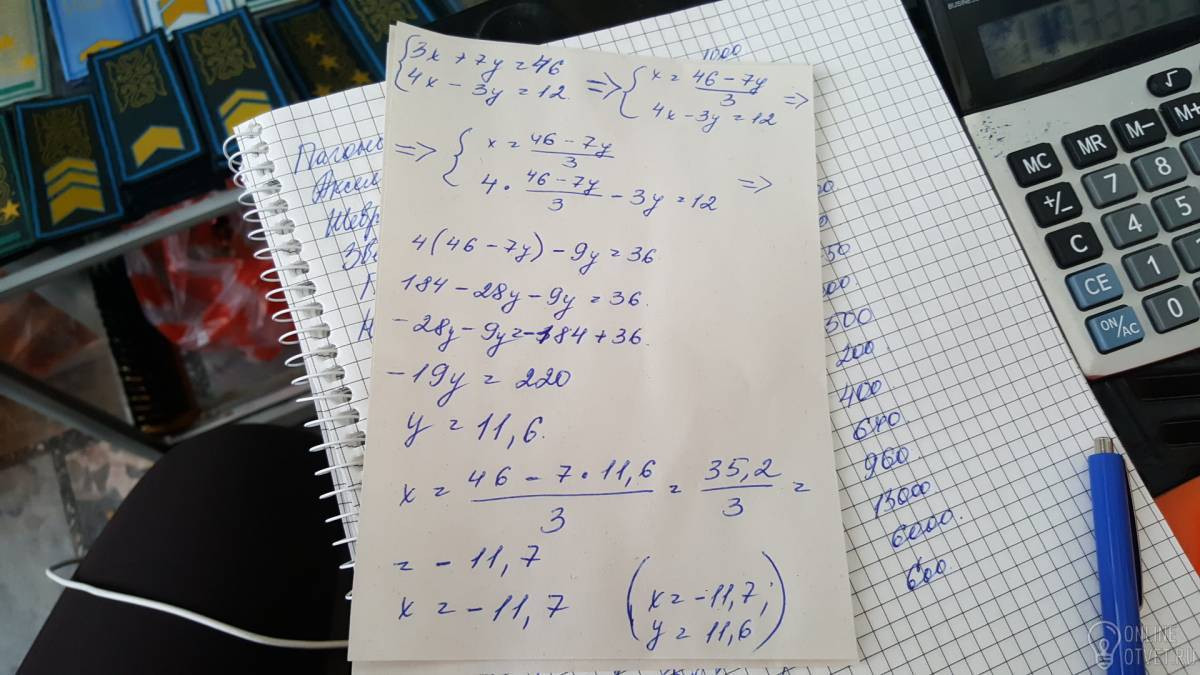 {3x + 7y = 46
{4x - 3y = 12 => {x = (46 - 7y)/3
4x - 3y = 12 =>
=> {x = (46 - 7y)/3
4 · (46 - 7y)/3 - 3y = 12 =>
4(46 - 7y) - 9y = 36
184 - 28y - 9y = 36.
-28y - 9y = -184 + 36.
-19y = 220
y = 11,6.
x = (46 - 7 · 11,6)/3 = 35,2/3 =
= -11,7
x = -11,7 (x = -11,7;
y = 11,6)
1000
50
500
200
400
640
960
13000
6000.
600
BUSINESS
√
MC MR M- M+
+/- 7 8
C 4 5
CE 1
ON/AC 0
ONLINE
OTVET.RU